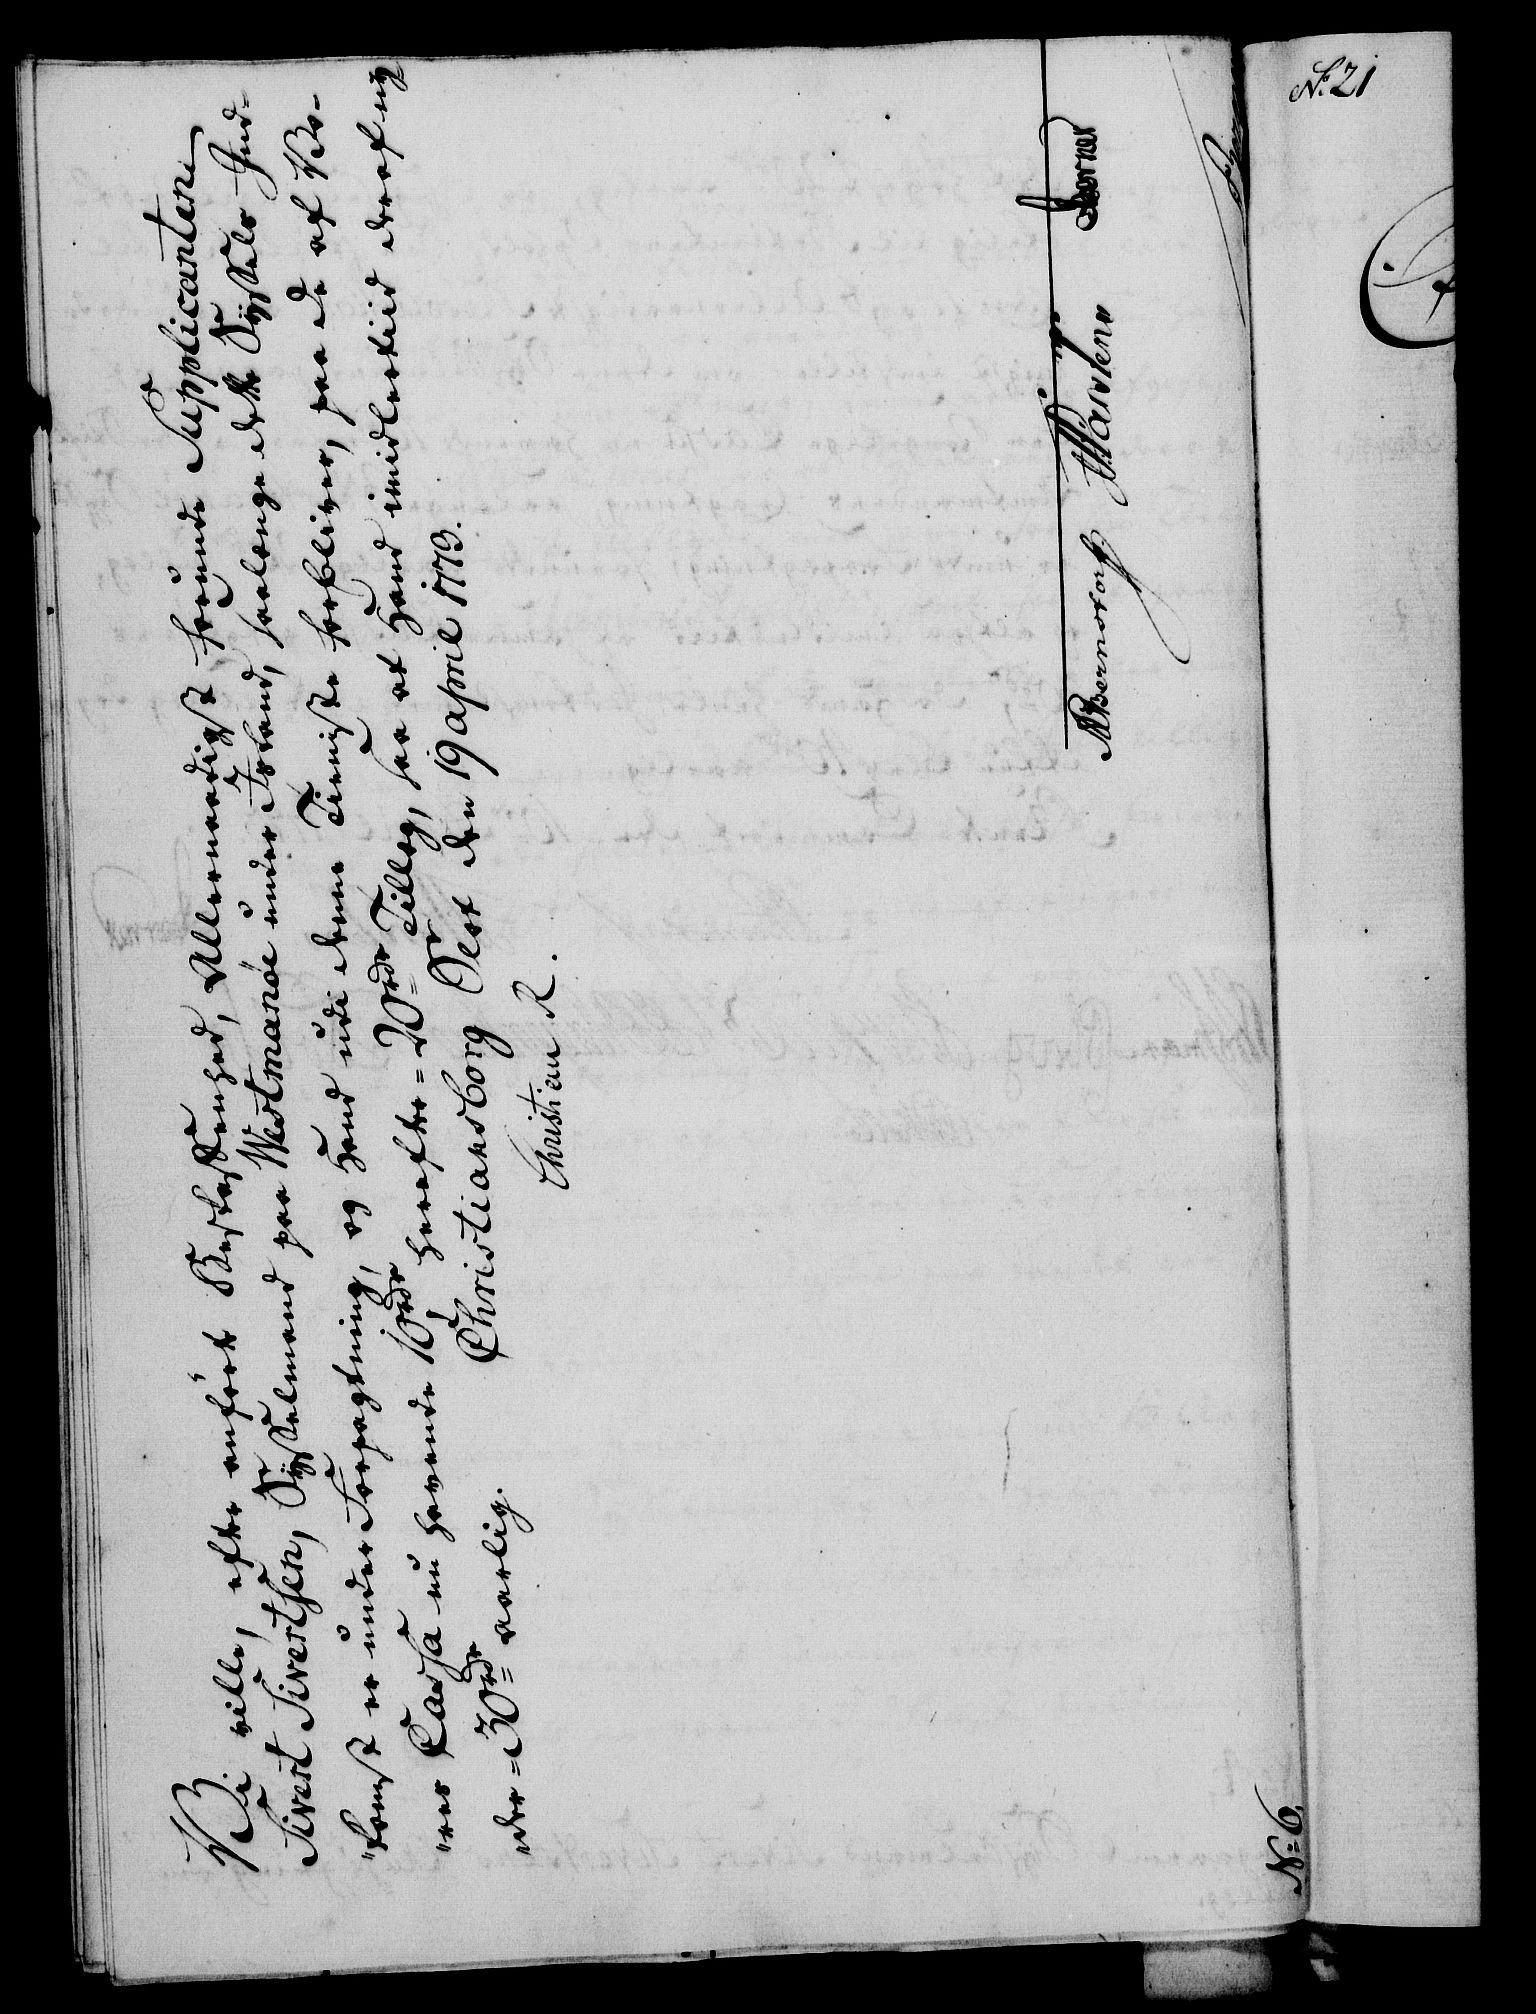 Vi ville, efter anførte Beskaffenhed, Allernaadigst forunde Supplicanten
Sivert Sivertsen, Sysselmand paa Westmanöe under Island, saalenge dette Syssels Ind-
"komst er under Forpagtning, og Hand udi denne Tieneste forbliver, paa de af Vo-
"res Cassa nu havende 10 rdr, herefter = 20 rdr Tillæg, saa at Hand imidlertiid deraf ny-
der = 30 rdr aarlig. Christiansborg Slot den 19 april 1773.
Christian R.
ABernstorff Wärtens Berner
N: 6.
No. 21